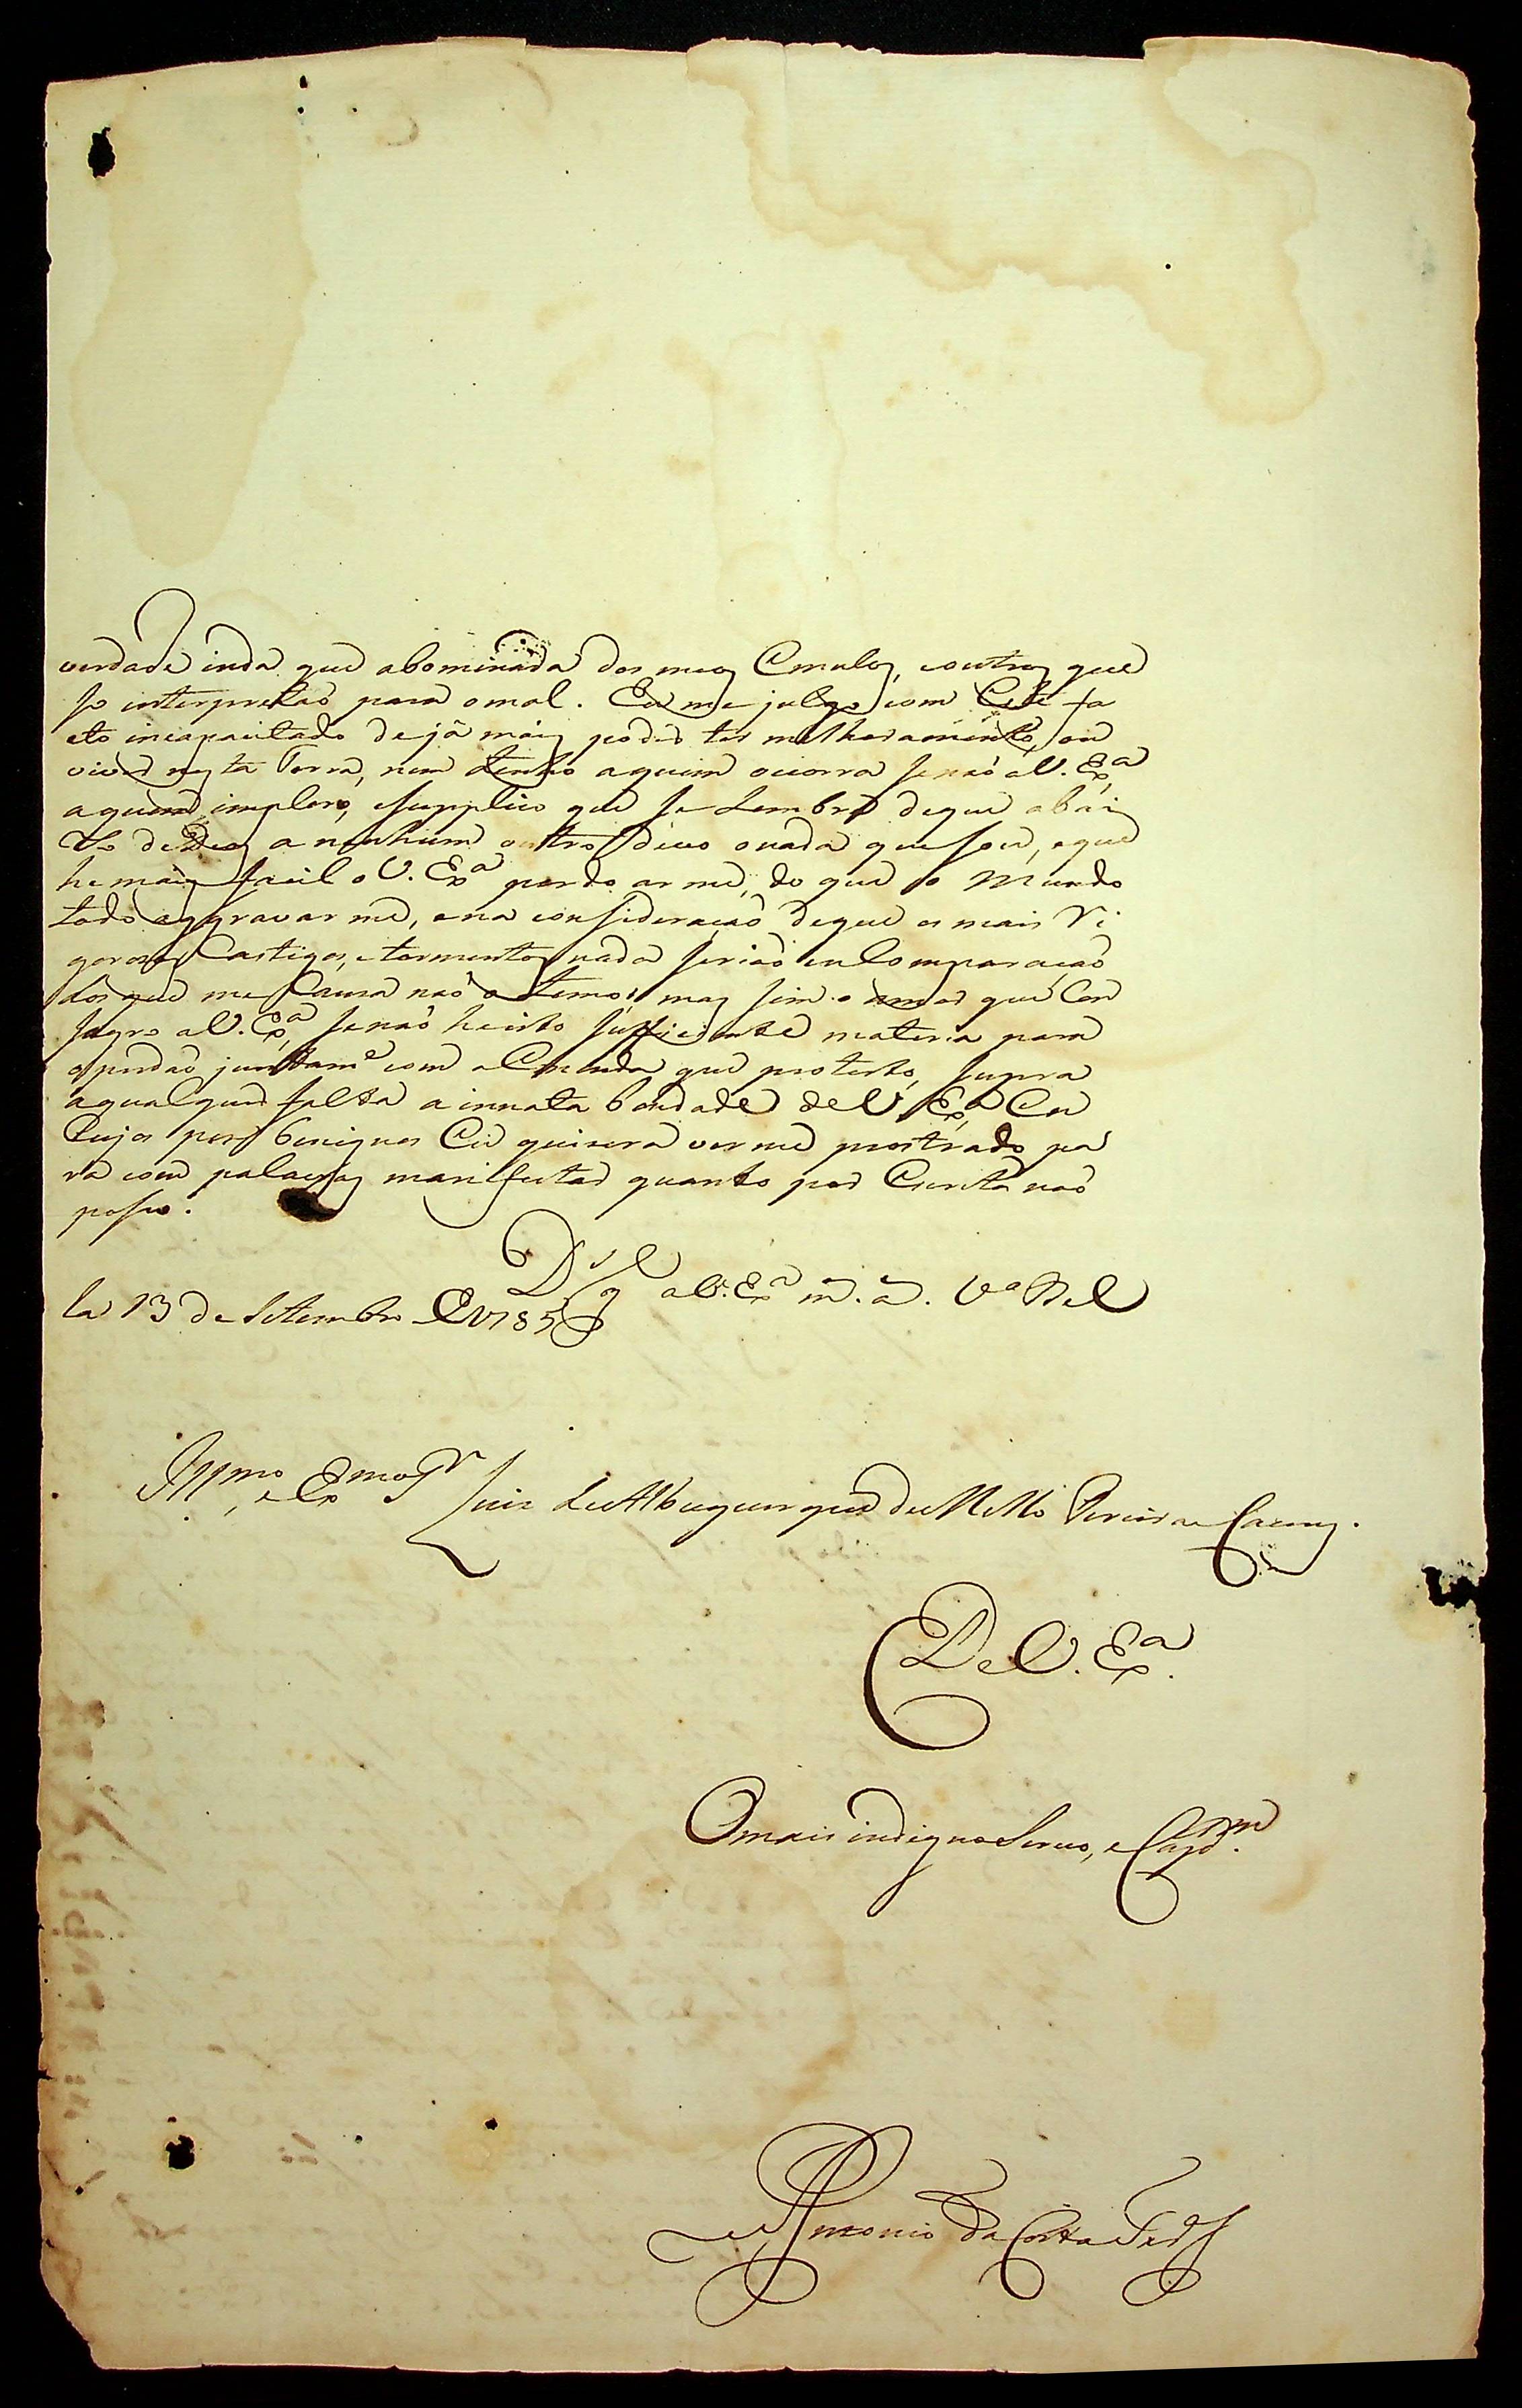 verdade inda que abominada dos meos Emulos, e outros que
so interpretaõ para o mal. Eu me julgo com Este fa
cto incapacitado de já mais poder ter melhoramento, ou
viver nesta Terra, nem tenho aquem ocorra senaõ a V. Exª
aquem imploro, e supplico que se Lembre de que abai
xo de Deos a nenhum outro devo o nada que sou, e que
he mais facil o V. Exª perdoarme, do que o Mundo
todo aggravarme, e na consideraçaõ de que os mais Ri
gorosos Castigos, e tormentos nada seriaõ em Comparaçaõ
dos que me Causa naõ o temor, mas sim o amor que Con
sagro a V. Exª, senaõ he isto sufficiente materia para
o perdaõ juntamᵉ com a Emenda que protesto, supra
aqualquer falta a innata bondade de V. Exª
Cujos pes benignos Eu quisera verme prostrado pa
ra com palavras manifestar quanto por Escrita naõ
posso.
Dˢ gᵉ a V. Exª m. a. Vª Bel
la 13 de Setembro de 1785
Illmo, e Exmo Sr Luis de Albuquerque de Mello Pereira e Caceres.
De V. Exª.
O mais indigno Servo, e
Antonio da Costa